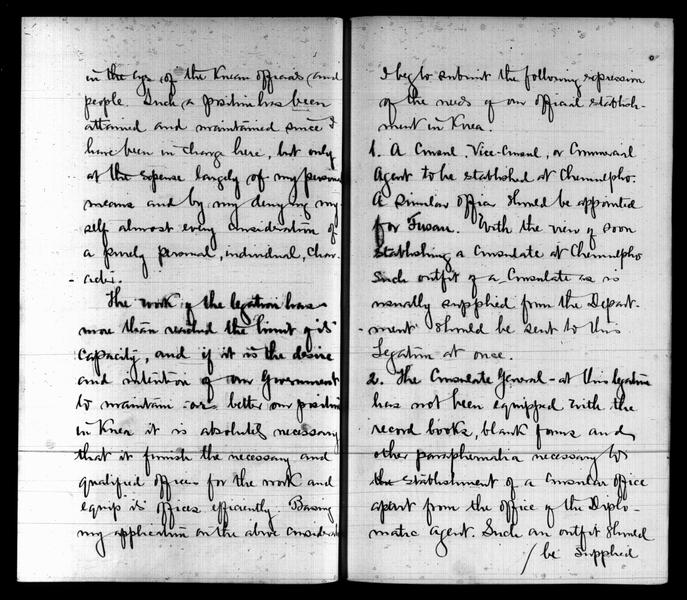 in the eyes of the Korean officials and
people. Such a position has been
attained and maintained since I
have been in charge here, but only
at the expense largely of my personal
means and by my denying my-
self almost every consideration of
a purely personal, individual, char-
acter.
The work of the legation has
more than reached the limit of its
capacity, and if it is the desire
and intention of our Government
to maintain or better our position
in Korea it is absolutely necessary
that it furnish the necessary and
qualified officers for the work and
equip its offices efficiently. Basing
my application on the above considerations
I beg to submit the following expression
of the needs of our official establish-
ment in Korea.
1. A Consul, Vice-Consul, or Commercial
Agent to be established at Chemulpho.
A similar officer should be appointed
for Fusan. With the view of soon
establishing a Consulate at Chemulpho
such outfit of a Consulate as is
usually supplied from the Depart-
ment should be sent to this
Legation at once.
2. The Consulate General - at this legation
has not been equipped with the
record books, blank forms and
other paraphernalia necessary to
the establishment of a Consular office
apart from the office of the Diplo-
matic Agent. Such an outfit should
/ be supplied